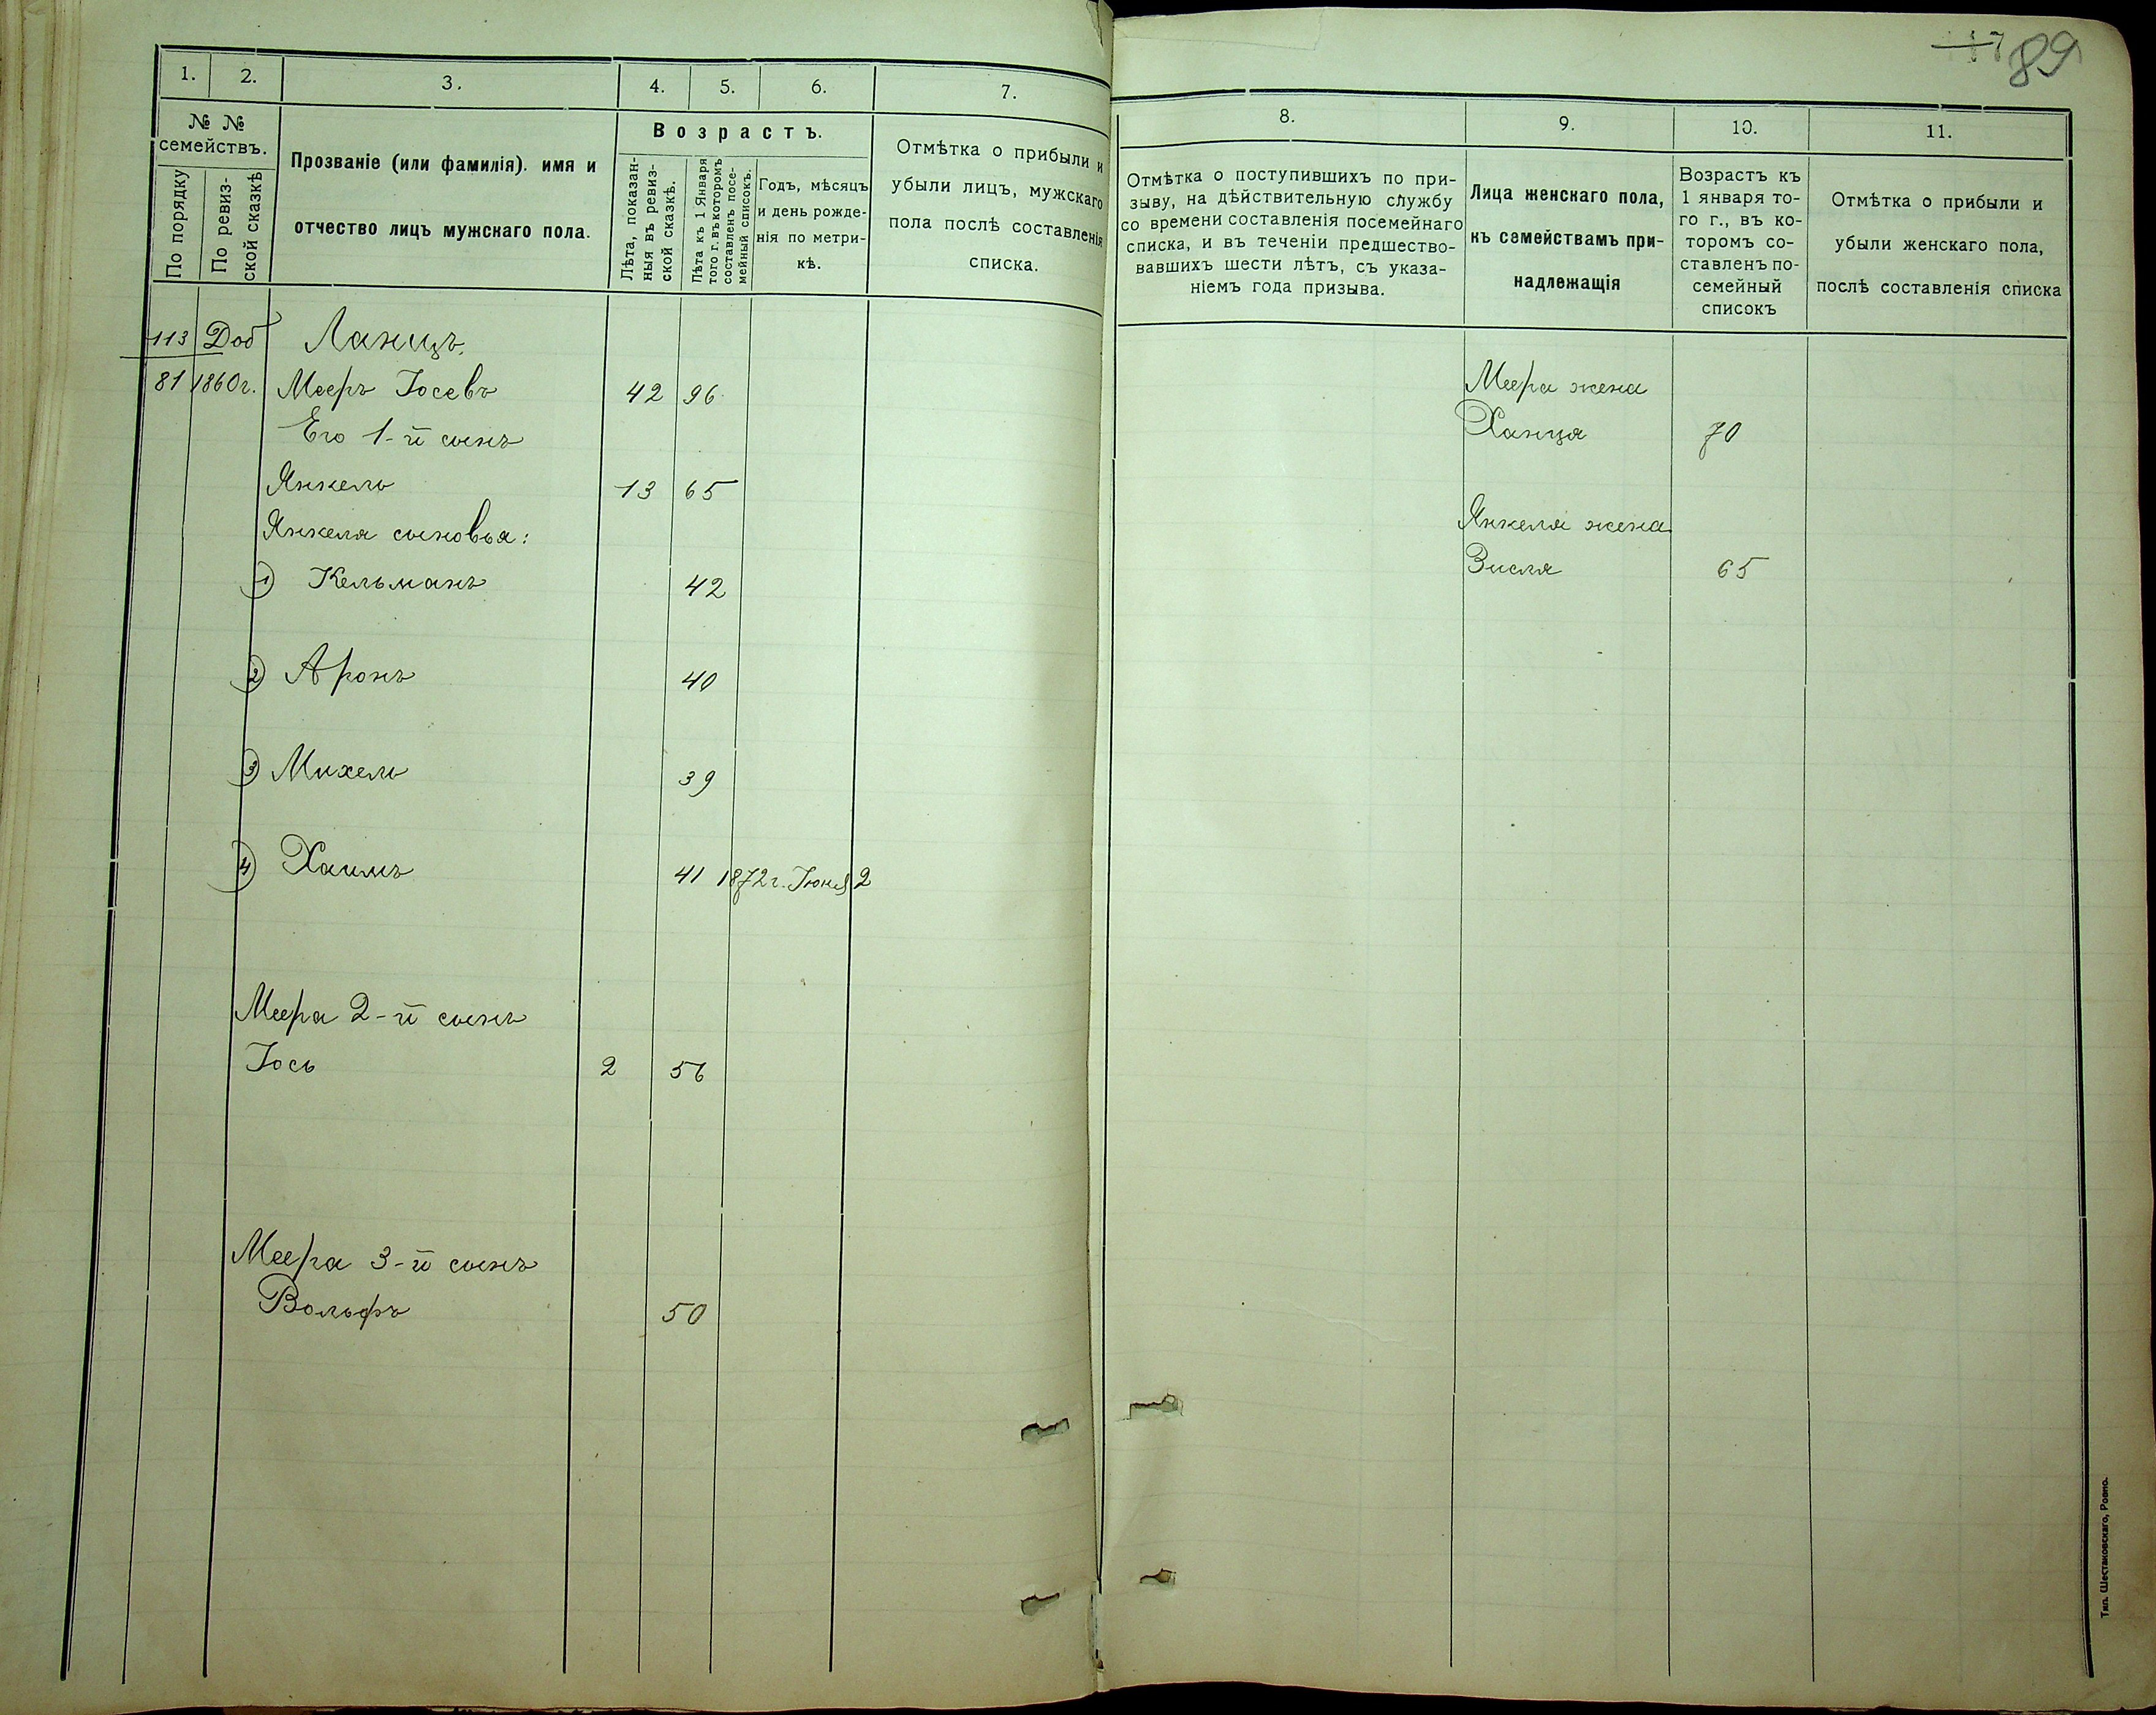 117 89
1. 2. 3. 4. 5. 6. 7.
№ №
семействъ.
По порядку
По ревиз-
ской сказкѣ
Прозваніе (или фамилія). имя и
отчество лицъ мужскаго пола.
Возрастъ.
Лѣта, показан-
ныя въ ревиз-
ской сказкѣ.
Лѣта къ 1 Января
того г. въ которомъ
составленъ посе-
мейный списокъ.
Годъ, мѣсяцъ
и день рожде-
нія по метри-
кѣ.
Отмѣтка о прибыли и
убыли лицъ, мужскаго
пола послѣ составленія
списка.
113 Доб Ланицъ.
81 1860г. Мееръ Іосевъ 42 96
Его 1-й сынъ
Янкель 13 65
Янкеля сыновья:
1) Кельманъ 42
2) Аронъ 40
3) Михель 39
4) Хаимъ 41 1872г. Іюня 2
Меера 2-й сынъ
Іось 2 56
Меера 3-й сынъ
Вольфъ 50
8. 9. 10. 11.
Отмѣтка о поступившихъ по при-
зыву, на дѣйствительную службу
со времени составленія посемейнаго
списка, и въ теченіи предшество-
вавшихъ шести лѣтъ, съ указа-
ніемъ года призыва.
Лица женскаго пола,
къ семействамъ при-
надлежащія
Возрастъ къ
1 января то-
го г., въ ко-
торомъ со-
ставленъ по-
семейный
списокъ
Отмѣтка о прибыли и
убыли женскаго пола,
послѣ составленія списка
Меера жена
Ханця 70
Янкеля жена
Зисля 65
Тип. Шестаковскаго, Ровно.